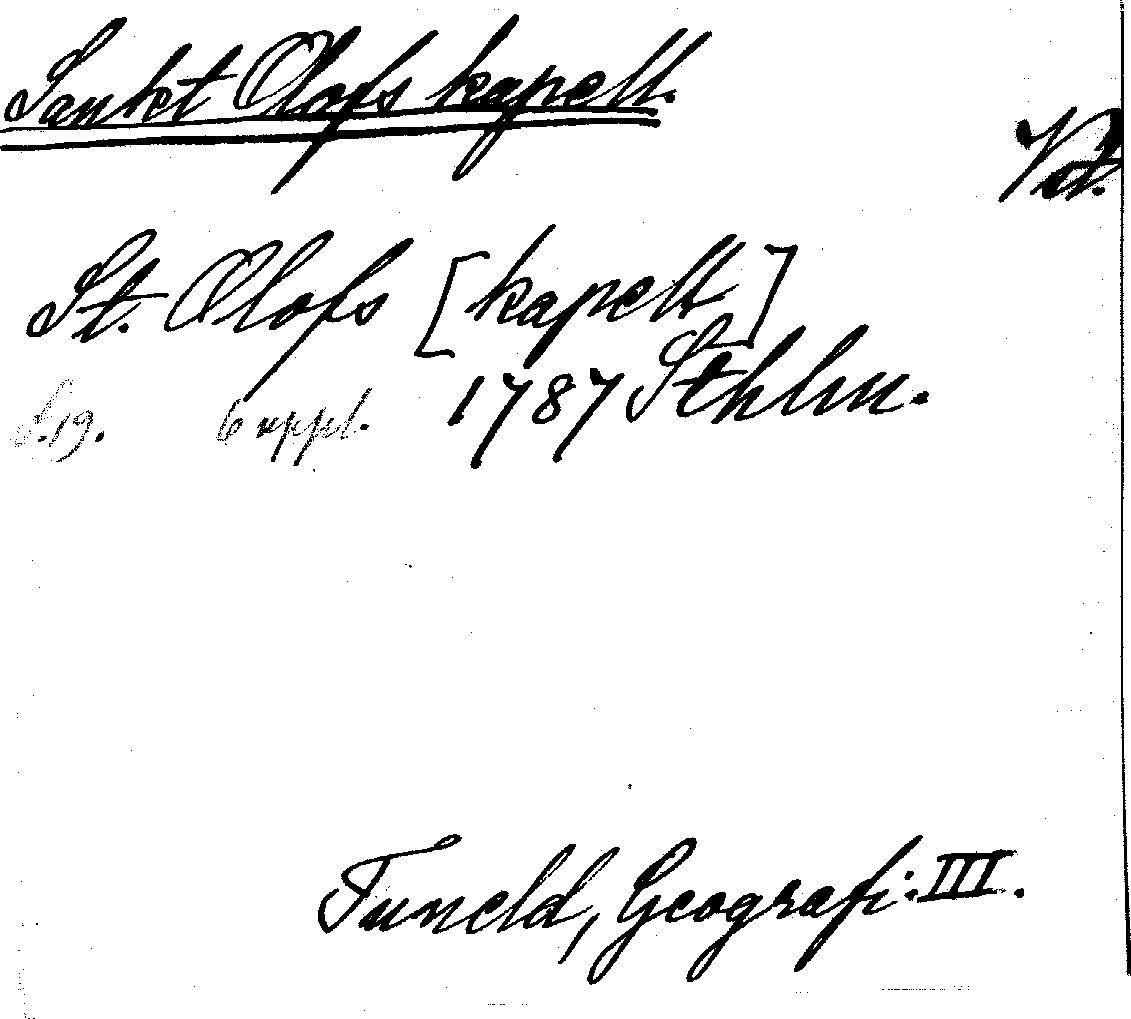 Sankt Olofs kapell.
Vbt.
St. Olofs [kapell]
S. 19. 6 uppl. 1787 Sthlm.
Tuneld, Geografi: III.